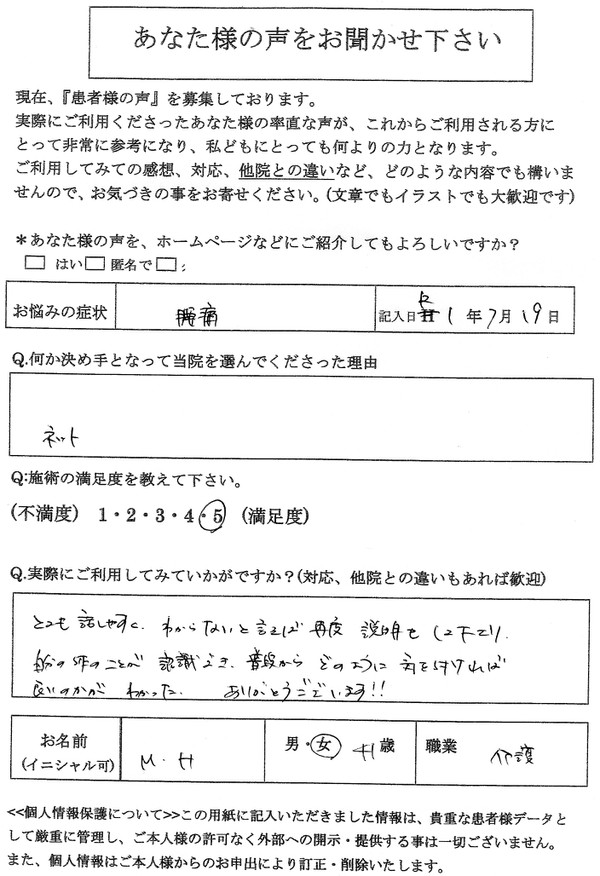 あなた様の声をお聞かせ下さい
現在、『患者様の声』を募集しております。
実際にご利用くださったあなた様の率直な声が、これからご利用される方に
とって非常に参考になり、私どもにとっても何よりの力となります。
ご利用してみての感想、対応、他院との違いなど、どのような内容でも構いま
せんので、お気づきの事をお寄せください。(文章でもイラストでも大歓迎です)
＊あなた様の声を、ホームページなどにご紹介してもよろしいですか？
□ はい □ 匿名で □ ;
お悩みの症状 腰痛 記入日 R 1 年 7 月 19 日
Q.何か決め手となって当院を選んでくださった理由
ネット
Q:施術の満足度を教えて下さい。
(不満度) 1・2・3・4・5 (満足度)
Q.実際にご利用してみていかがですか？(対応、他院との違いもあれば歓迎)
とても話しやすく、わからないと言えば再度説明もして下さり、
自分の体のことが認識でき、普段からどのように気を付ければ
良いのかがわかった。 ありがとうございます!!
お名前
(イニシャル可) M.H 男・女 41歳 職業 介護
<<個人情報保護について>>この用紙に記入いただきました情報は、貴重な患者様データと
して厳重に管理し、ご本人様の許可なく外部への開示・提供する事は一切ございません。
また、個人情報はご本人様からのお申出により訂正・削除いたします。